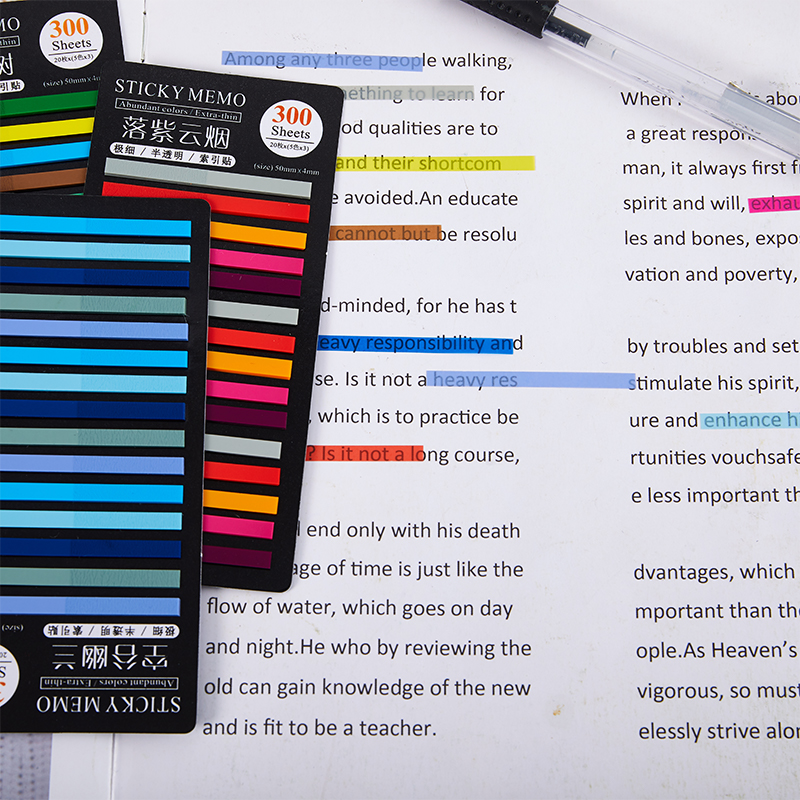 300
Sheets
20枚x(5色x3)
(size) 50mm x 4m
STICKY MEMO
Abundant colors / Extra-thin
落紫云烟
300
Sheets
20枚x(5色x3)
极细 / 半透明 / 索引贴
(size) 50mm x 4mm
STICKY MEMO
Abundant colors / Extra-thin
空谷幽兰
极细 / 半透明 / 索引贴
(size)
Among any three people walking,
mething to learn for
od qualities are to
and their shortcom
e avoided.An educate
cannot but be resolu
d-minded, for he has t
eavy responsibility and
se. Is it not a heavy res
, which is to practice be
? Is it not a long course,
end only with his death
age of time is just like the
flow of water, which goes on day
and night.He who by reviewing the
old can gain knowledge of the new
and is fit to be a teacher.
When abou
a great respon
man, it always first f
spirit and will, exhau
les and bones, expo
vation and poverty,
by troubles and set
stimulate his spirit,
ure and enhance h
rtunities vouchsafe
e less important th
dvantages, which
mportant than the
ople.As Heaven's
vigorous, so must
elessly strive alon